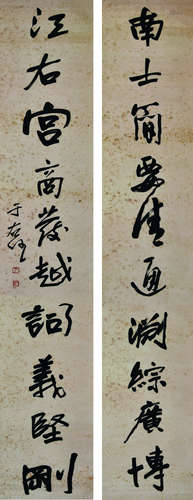 南士簡要清通淵綜廣博
江右宮商發越詞義堅剛
于右任